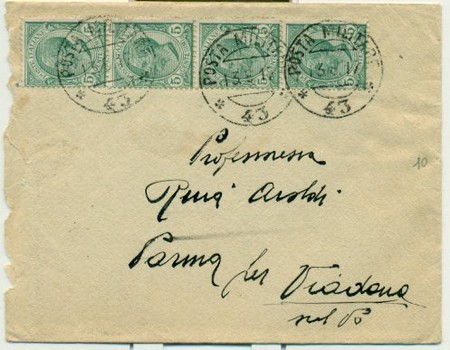 POSTA MILITARE
* 43 *
POSTA MILITARE
* 43 *
POSTA MILITARE
* 43 *
5 5 5 5
Professoressa
Aroldi
Parma per Viadana
sul Po
10